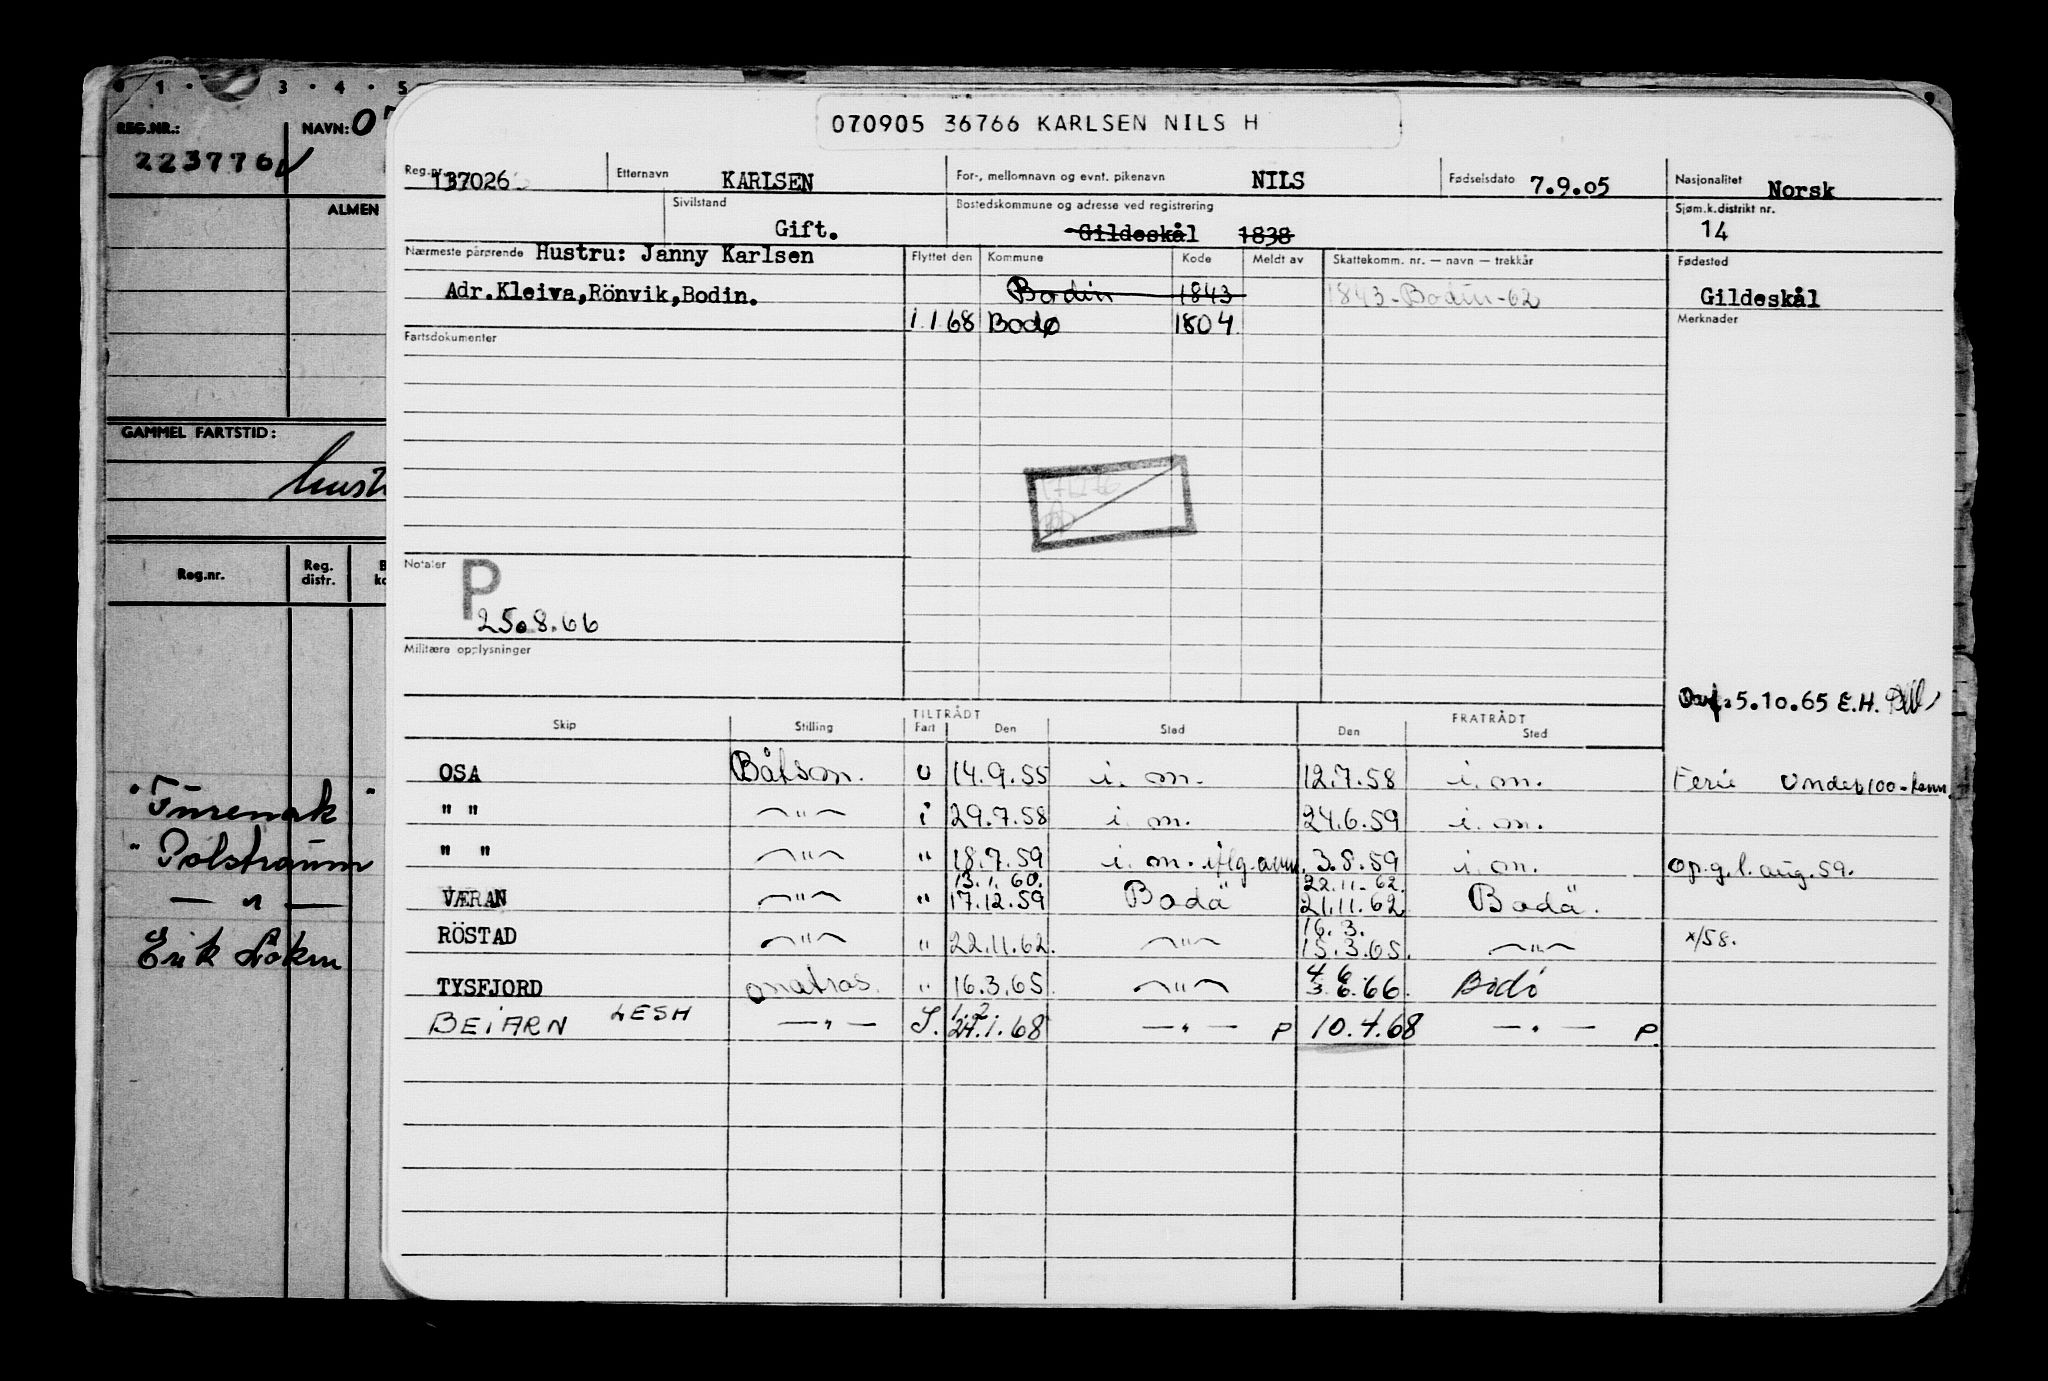 1 · 3 · 4 · 5
REG.NR.:
NAVN:
223776
ALMEN
GAMMEL FARTSTID:
Reg.nr.
Reg. distr.
"Turemak"
" Polstraum
— " —
Erik Loken
070905 36766 KARLSEN NILS H
Reg.nr. 137026 Etternavn KARLSEN For-, mellomnavn og evnt. pikenavn NILS Fødselsdato 7.9.05 Nasjonalitet Norsk
Sivilstand Gift. Bostedskommune og adresse ved registrering Gildeskål 1838 Sjøm.k.distrikt nr. 14
Nærmeste pårørende Hustru: Janny Karlsen Flyttet den Kommune Kode Meldt av Skattekomm. nr. — navn — trekkår Fødested
Adr.Kleiva,Rönvik,Bodin. Bodin 1843 1843-Bodin-62 Gildeskål
1.1.68 Bodø 1804 Merknader
Fartsdokumenter
Notater P
25.8.66
Militære opplysninger
5.10.65 E.H.
TILTRÅDT FRATRÅDT
Skip Stilling Fart Den Sted Den Sted
OSA Båtsm. U 14.9.55 i. m. 12.7.58 i. m. Ferie Under 100-
" " —"— i 29.7.58 i. m. 24.6.59 i. m.
" " —"— " 18.7.59 i. m. 3.8.59 i. m. Op.g.l. aug. 59.
13.1.60. 22.11.62.
VÆRAN —"— " 17.12.59 Bodä 21.11.62 Bodä.
16.3.
RÖSTAD —"— " 22.11.62. —"— 15.3.65. —"— x/58.
4 6
TYSFJORD matros. " 16.3.65. —"— 3.6.66. Bodö
1. 2.
BEIARN LESH —"— 24.1.68 —"— P 10.4.68 —"— P.